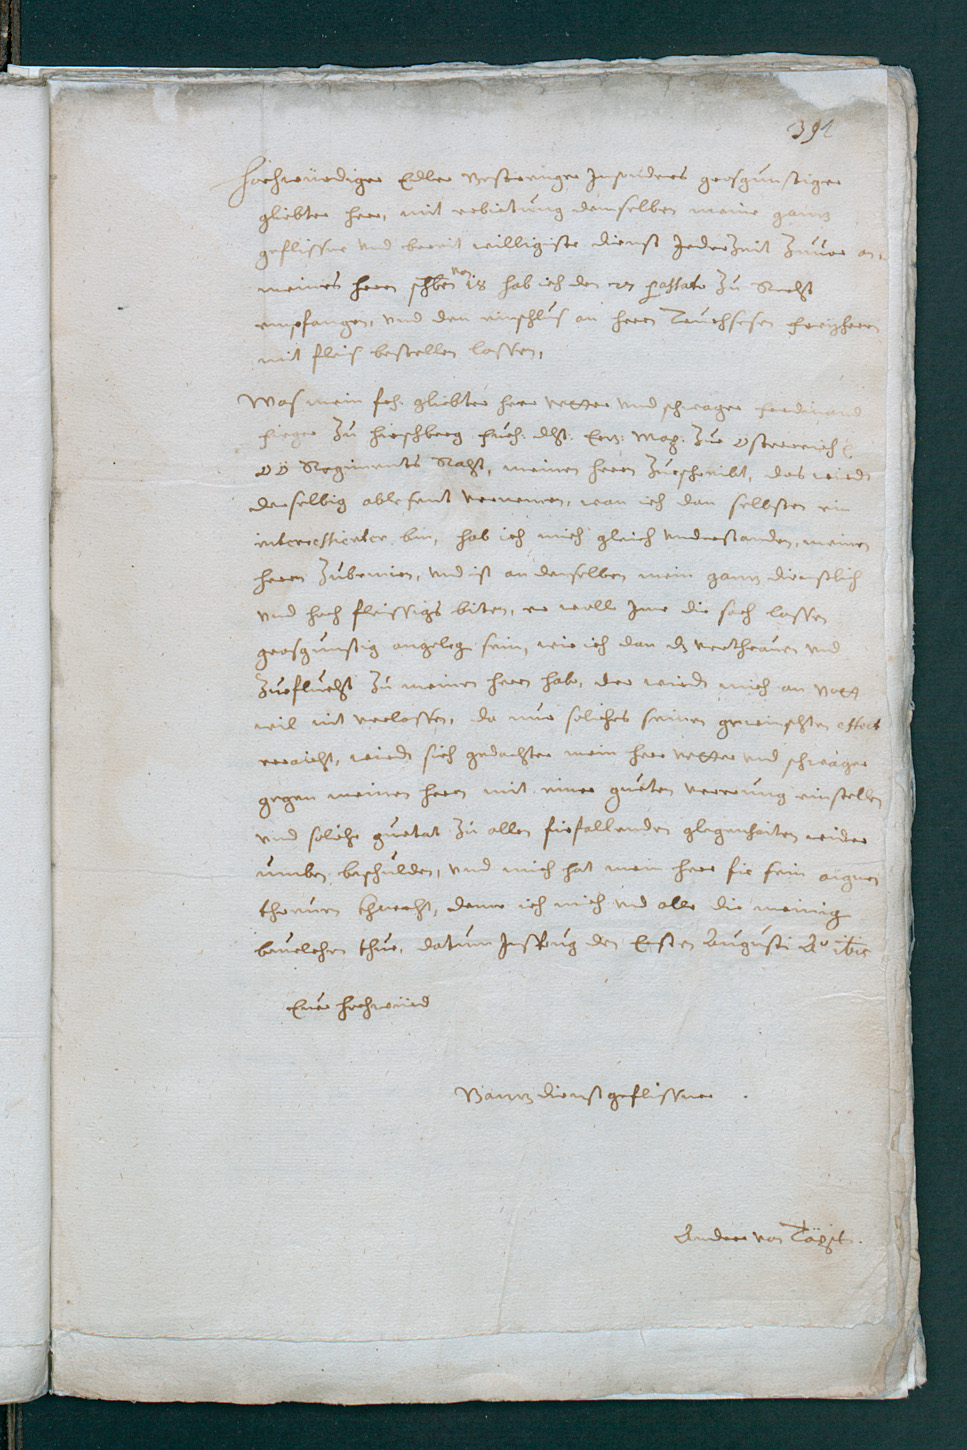 391
Hochwürdiger Edler Vestrenger Insonders grosgunstiger
gliebter herr, mit erbietung demselben meine ganz
geflissne und bereit willigiste dienst Jederzeit Zuuor an
meines herrn schben von 18 hab ich den 27 passato Zu Nacht
empfangen, und den einschlus an herrn Truchsesen freyherrn
mit fleis bestellen lassen,
Was mein frh: gliebter herr vetter und schwager Ferdinand
Fieger Zu Hirschberg Fürh: dht: Erz: Max: Zue Österreich
OÖ Regiments Raht, meinem herrn Zueschreibt, das wirdt
derselbig ablesent vernemen, wan ich dan selbsten ein
interessierter bin, hab ich mich gleich understanden, meinen
herrn Zubemien, und ist an denselben mein ganz dienstlich
und hoch fleissigs biten, er welle Ime die sach lassen
grosgunstig angelegen sein, wie ich dan dz verthrauen und
Zuoflucht Zu meinem herrn hab, der wirdt mich an
nit verlassen, da nur soliches seinen gewinschten effect
erraicht, wirdt sich gedachter mein herr vetter und schwager
gegen meinem herrn mit einer guten vererung einstellen
und soliche guetat Zu allen fürfallenden glegenhaiten wider
umben beschulden, und mich hat mein herr für sein aignen
thrеuen khnecht, deme ich mich und alle die meinig
beuelchen thue, datum Insprug den Ersten Augusti Aº 1616
Euer hochwürd
Ganz dienstgeflissner
Andree von